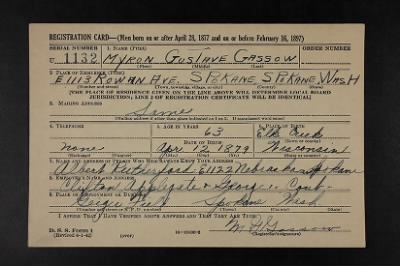 REGISTRATION CARD—(Men born on or after April 28, 1877 and on or before February 16, 1897)
SERIAL NUMBER 1. NAME (Print) ORDER NUMBER
U 1132 MYRON GUSTAVE GASSOW
(First) (Middle) (Last)
2. PLACE OF RESIDENCE (Print)
E1113 ROWAN AVE. SPOKANE, SPOKANE, WASH
(Number and street) (Town, township, village, or city) (County) (State)
[THE PLACE OF RESIDENCE GIVEN ON THE LINE ABOVE WILL DETERMINE LOCAL BOARD
JURISDICTION; LINE 2 OF REGISTRATION CERTIFICATE WILL BE IDENTICAL]
3. MAILING ADDRESS
Same
[Mailing address if other than place indicated on line 2. If same insert word same]
4. TELEPHONE 5. AGE IN YEARS 6. PLACE OF BIRTH
63 Elk Creek
DATE OF BIRTH (Town or county)
None Apr 12 1879 Wisconsin
(Exchange) (Number) (Mo.) (Day) (Yr.) (State or country)
7. NAME AND ADDRESS OF PERSON WHO WILL ALWAYS KNOW YOUR ADDRESS
Albert Rutherford E1122 Nebraska Spokane
8. EMPLOYER'S NAME AND ADDRESS
Clifton Applegate &
9. PLACE OF EMPLOYMENT OR BUSINESS
Geiger Field Spokane Wash
I AFFIRM THAT I HAVE VERIFIED ABOVE ANSWERS AND THAT THEY ARE TRUE.
M G Gassow
D. S. S. Form 1
(Revised 4-1-42) (over) (Registrant's signature)